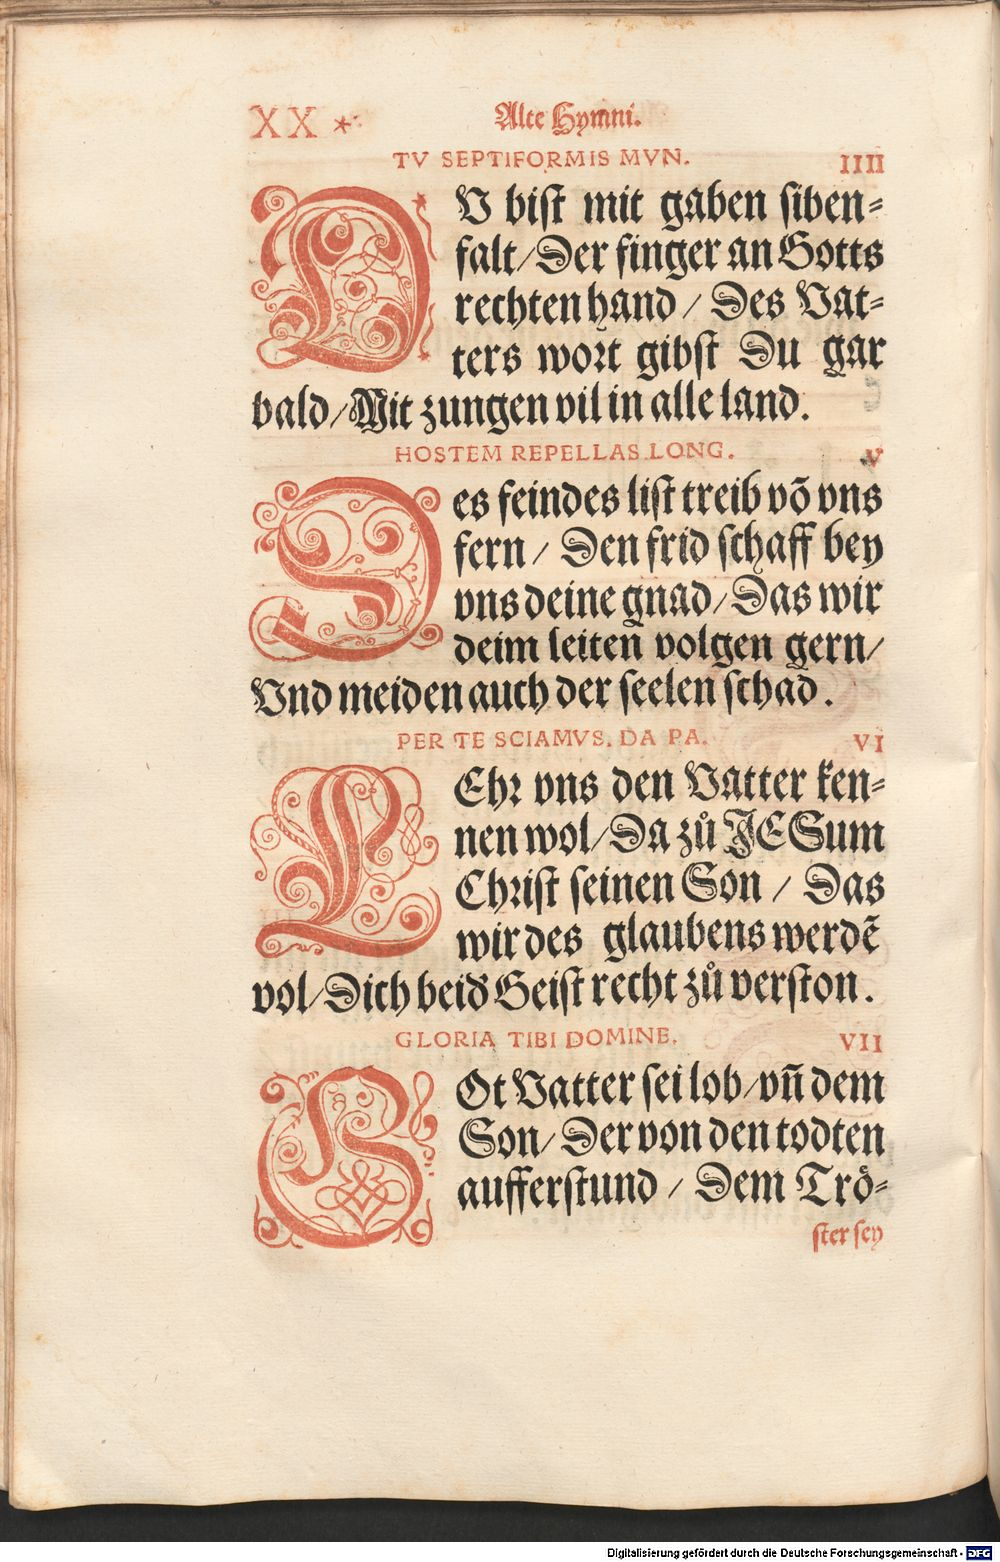 XX *
Alte Hymni.
TV SEPTIFORMIS MVN. IIII
DV bist mit gaben siben⸗
falt/Der finger an Gotts
rechten hand / Des Vat⸗
ters wort gibst Du gar
bald/Mit zungen vil in alle land.
HOSTEM REPELLAS LONG. V
Des feindes list treib võ vns
fern / Den frid schaff bey
vns deine gnad/Das wir
deim leiten volgen gern/
Vnd meiden auch der seelen schad.
PER TE SCIAMVS. DA PA. VI
LEhr vns den Vatter ken⸗
nen wol/Da zů JESum
Christ seinen Son / Das
wir des glaubens werdẽ
vol/Dich beid Geist recht zů verston.
GLORIA TIBI DOMINE. VII
GOt Vatter sei lob/vñ dem
Son/Der von den todten
aufferstund / Dem Trö⸗
ster sey
Digitalisierung gefördert durch die Deutsche Forschungsgemeinschaft - DFG